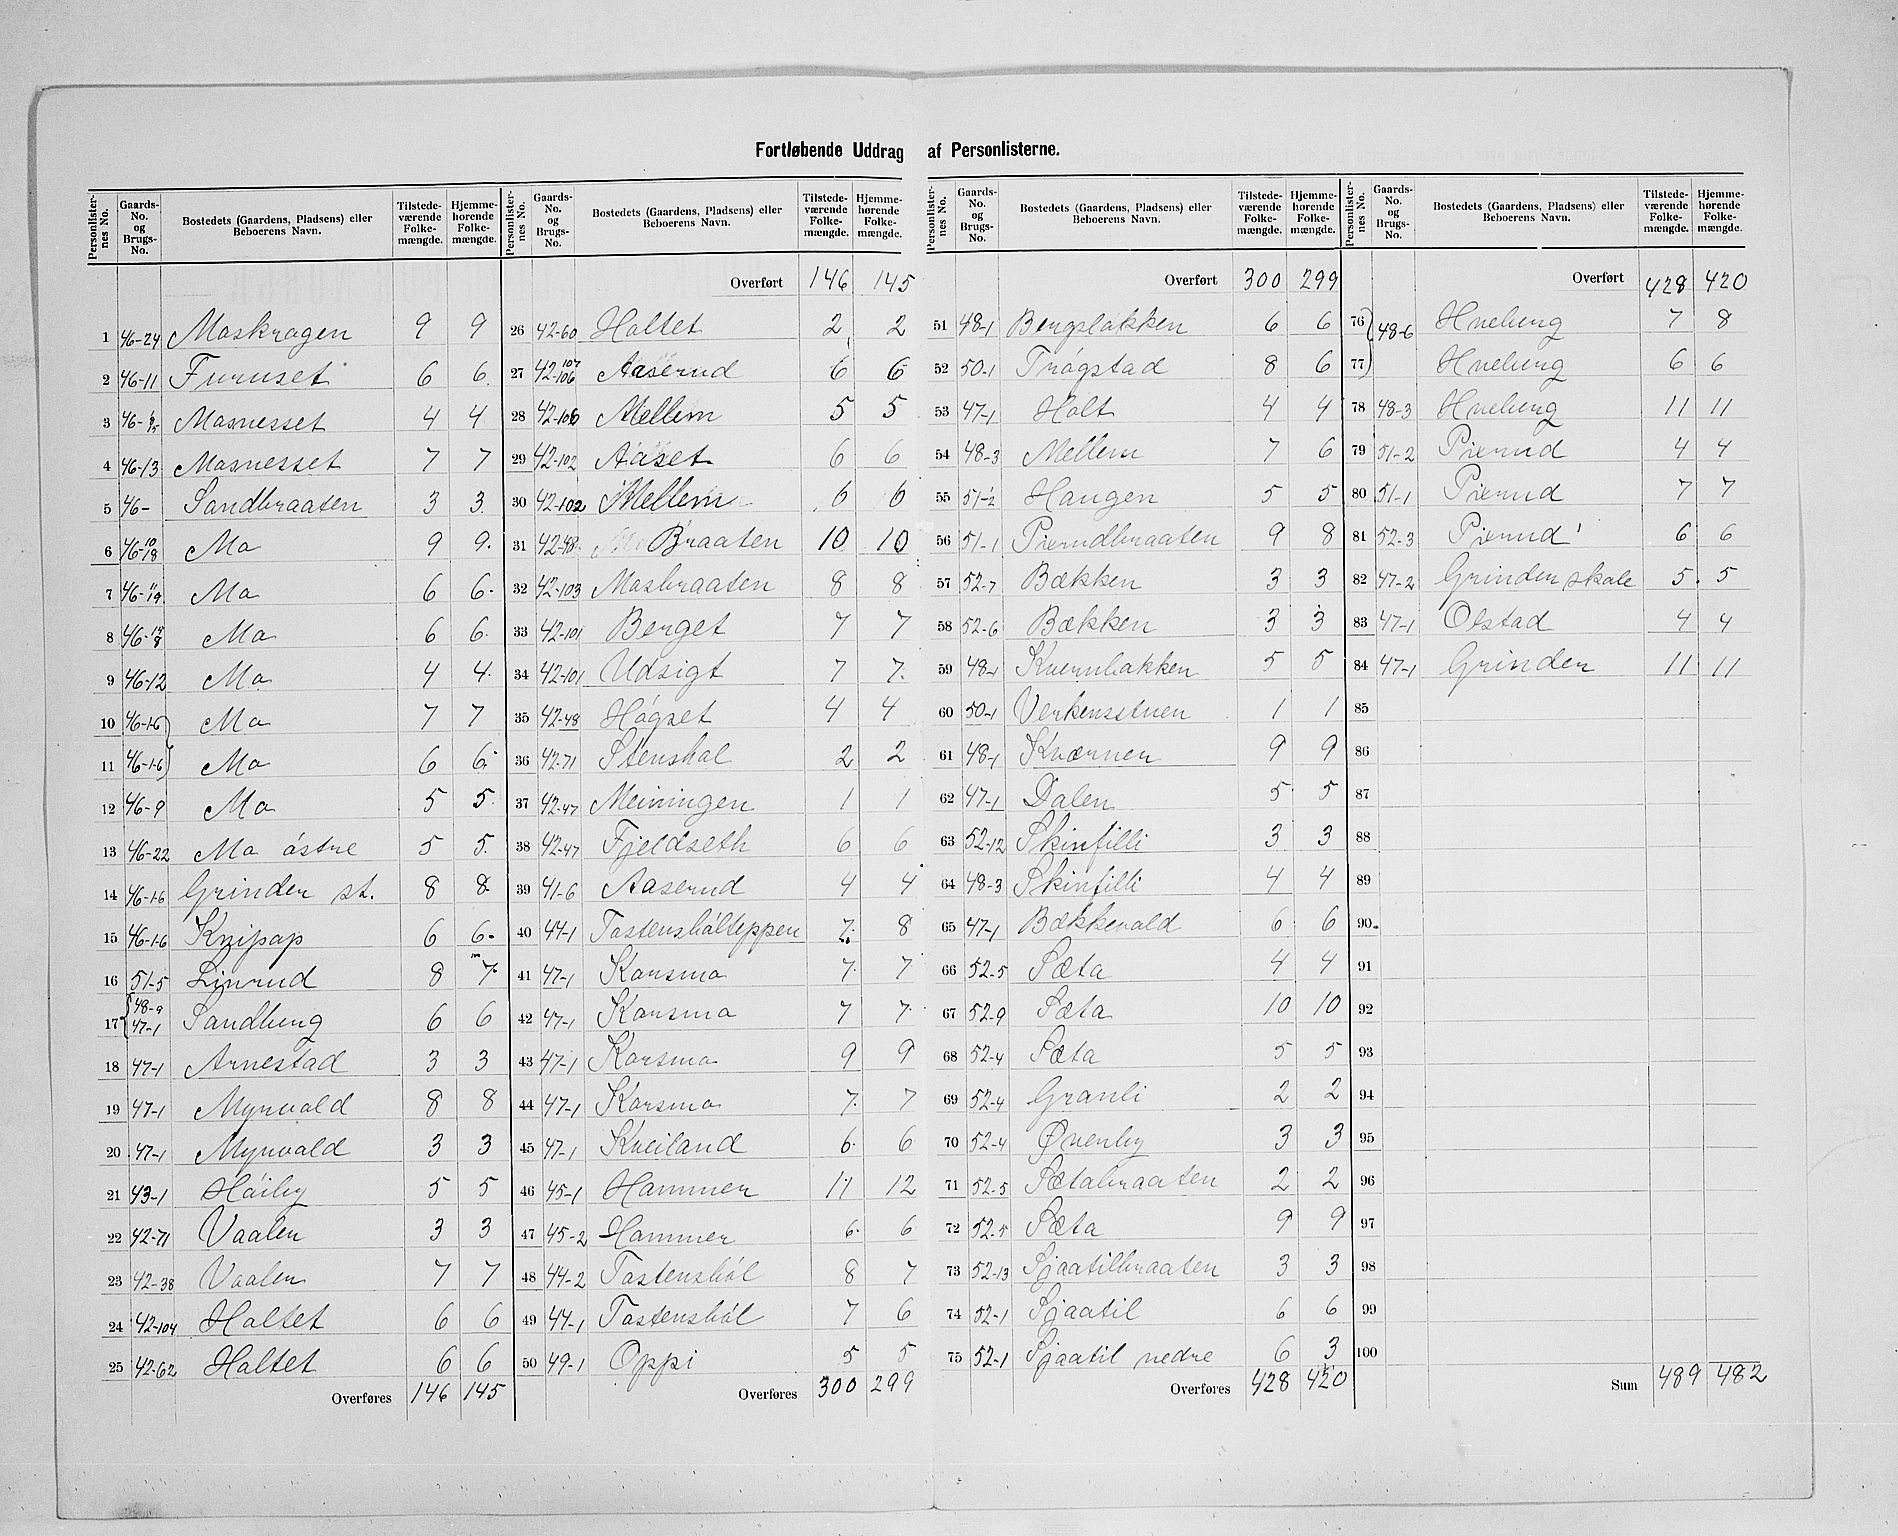 Fortløbende Uddrag af Personlisterne.
Personlister-nes No. Gaards-No. og Brugs-No. Bostedets (Gaardens, Pladsens) eller Beboerens Navn. Tilstede-værende Folke-mængde. Hjemme-hørende Folke-mængde.
1 46-24 Moskragen 9 9
2 46-11 Furuset 6 6
3 46- Mosnesset 4 4
4 46-13 Mosnesset 7 7
5 46- Sandbraaten 3 3
6 46-10/18 Mo 9 9
7 46- Mo 6 6
8 46- Mo 6 6
9 46-12 Mo 4 4
10 46-1-6 Mo 7 7
11 46-1-6 Mo 6 6
12 46-9 Mo 5 5
13 46-22 Mo östre 5 5
14 46-1-6 Grinder st. 8 8
15 46-1-6 Knipap 6 6
16 51-5 Linrud 8 7
17 48-9 47-1 Sandberg 6 6
18 47-1 Arnestad 3 3
19 47-1 Myrvold 8 8
20 47-1 Myrvold 3 3
21 43-1 Höiby 5 5
22 42-71 Vaalen 3 3
23 42-38 Vaalen 7 7
24 42-104 Holtet 6 6
25 42-62 Holtet 6 6
Overføres 146 145
Personlister-nes No. Gaards-No. og Brugs-No. Bostedets (Gaardens, Pladsens) eller Beboerens Navn. Tilstede-værende Folke-mængde. Hjemme-hørende Folke-mængde.
Overført 146 145
26 42-60 Holtet 2 2
27 42-107/106 Aaserud 6 6
28 42-106 Mellem 5 5
29 42-102 Aaset 6 6
30 42-102 Mellem 6 6
31 42-48 Braaten 10 10
32 42-103 Mosbraaten 8 8
33 42-101 Berget 7 7
34 42-101 Udsigt 7 7
35 42-48 Högset 4 4
36 42-71 Stenshol 2 2
37 42-47 Meiningen 1 1
38 42-47 Fjeldseth 6 6
39 41-6 Aaserud 4 4
40 44-1 Tostenshölteppen 7 8
41 47-1 Korsmo 7 7
42 47-1 Korsmo 7 7
43 47-1 Korsmo 9 9
44 47-1 Korsmo 7 7
45 47-1 Kveiland 6 6
46 45-1 Hammer 11 12
47 45-2 Hammer 6 6
48 44-2 Tostenshöl 8 7
49 44-1 Tostenshöl 7 6
50 49-1 Oppi 5 5
Overføres 300 299
Personlister-nes No. Gaards-No. og Brugs-No. Bostedets (Gaardens, Pladsens) eller Beboerens Navn. Tilstede-værende Folke-mængde. Hjemme-hørende Folke-mængde.
Overført 300 299
51 48-1 Bergslökken 6 6
52 50-1 Trögstad 8 6
53 47-1 Holt 4 4
54 48-3 Mellem 7 6
55 51-2 Haugen 5 5
56 51-1 Pierudbraaten 9 8
57 52-7 Bækken 3 3
58 52-6 Bækken 3 3
59 48-1 Kvernbakken 5 5
60 50-1 Verkensstuen 1 1
61 48-1 Kværnen 9 9
62 47-1 Dalen 5 5
63 52-12 Skinfilli 3 3
64 48-3 Skinfilli 4 4
65 47-1 Bækkevold 6 6
66 52-5 Sæta 4 4
67 52-9 Sæta 10 10
68 52-4 Sæta 5 5
69 52-4 Granli 2 2
70 52-4 Øverby 3 3
71 52-5 Sætabraaten 2 2
72 52-5 Sæta 9 9
73 52-13 Sjaatilbraaten 3 3
74 52-1 Sjaatil 6 6
75 52-1 Sjaatil nedre 6 3
Overføres 428 420
Personlister-nes No. Gaards-No. og Brugs-No. Bostedets (Gaardens, Pladsens) eller Beboerens Navn. Tilstede-værende Folke-mængde. Hjemme-hørende Folke-mængde.
Overført 428 420
76 48-6 Hveberg 7 8
77 Hveberg 6 6
78 48-3 Hveberg 11 11
79 51-2 Pierud 4 4
80 51-1 Pierud 7 7
81 52-3 Pierud 6 6
82 47-2 Grinder skole 5 5
83 47-1 Olstad 4 4
84 47-1 Grinder 11 11
85
86
87
88
89
90
91
92
93
94
95
96
97
98
99
100
Sum 489 482